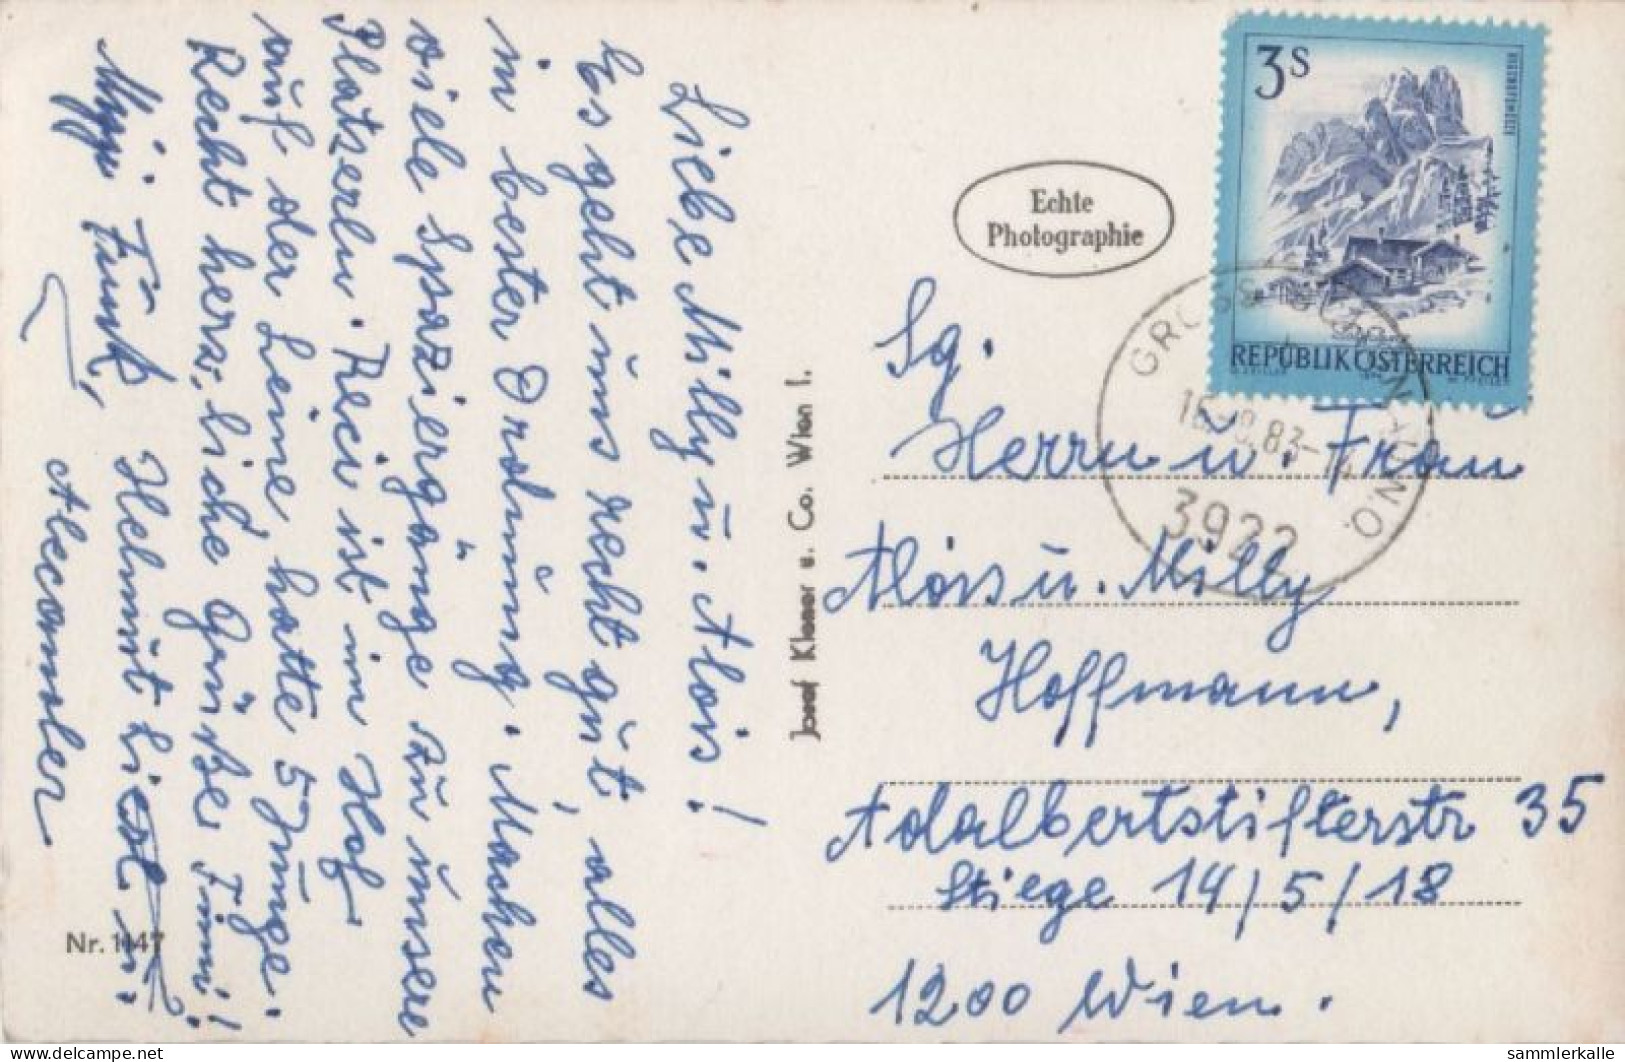 Liebe Milly u. Alois!
Es geht uns recht gut, alles
in bester Ordnung. Machen
viele Spaziergänge zu unsere
Platzerln. Reci ist im Hof
auf der Leine, hatte 5 Junge.
Recht herz-liche Grüße Fini!
Helmut Liesl u.
Alexander
Funk,
Nr. 1147
Josef Kleser u. Co. Wien I.
Echte
Photographie
3S
BISCHOFSMÜTZE
REPUBLIK ÖSTERREICH
GROSS
83-14
3922
Sg.
Herrn u. Frau
Alois u. Milly
Hoffmann,
Adalbertstifterstr 35
Stiege 14/5/18
1200 Wien.
sammlerkalle